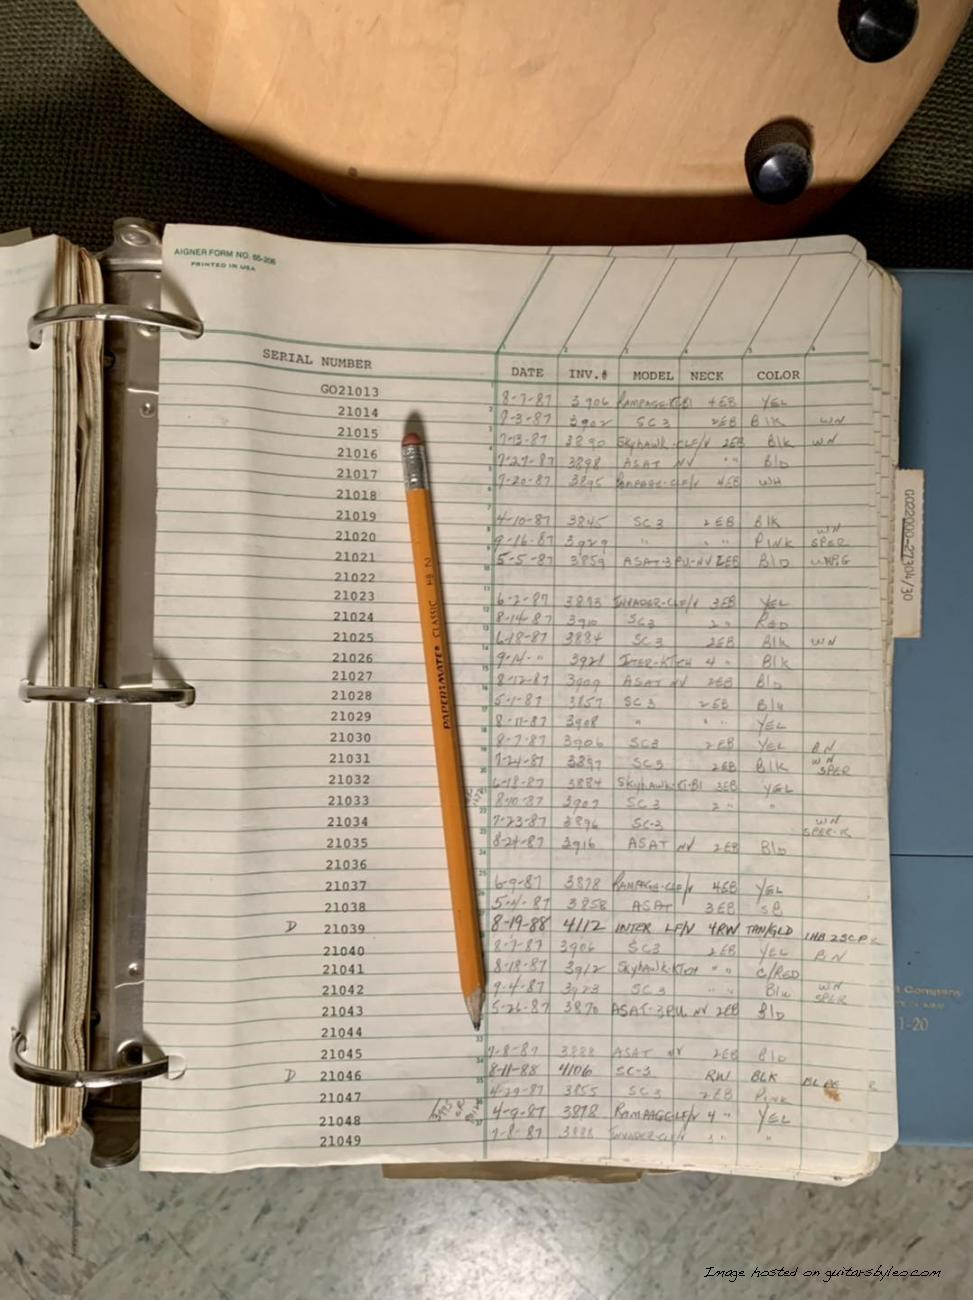 AIGNER FORM NO. 65-206
PRINTED IN USA
SERIAL NUMBER DATE INV.# MODEL NECK COLOR
GO21013 8-7-87 3906 RAMPAGE-KT-B1 4EB YEL
21014 9-3-87 3902 SC3 2EB BLK WN
21015 7-13-87 3890 SKYHAWK-CLE/V 2EB BLK WN
21016 7-27-87 3898 ASAT NV " " BLD
21017 7-20-87 3895 RAMPAGE-CLE/V 4EB WH
21018
21019 4-10-87 3845 SC3 2EB BLK
21020 9-16-87 3929 " " " PINK WN SPER
21021 5-5-87 3859 ASAT-3PU-NV 2EB BLD
21022
21023 6-2-87 3873 INVADER-CLE/V 3EB YEL
21024 8-14-87 3910 SC3 2 " RED
21025 6-18-87 3884 SC3 2EB BLK WN
21026 9-14- " 3921 INTER-KTCH 4 " BLK
21027 8-12-87 3909 ASAT NV 2EB BLD
21028 5-1-87 3857 SC3 2EB BLU
21029 8-11-87 3908 " " " YEL
21030 8-7-87 3906 SC3 2EB YEL BN
21031 7-24-87 3897 SC3 2EB BLK WN SPER
21032 6-18-87 3884 SKYHAWK-KT-B1 3EB YEL
21033 8-10-87 3907 SC3 2 " "
21034 7-23-87 3896 SC-3 WN SPER-K
21035 8-24-87 3916 ASAT NV 2EB BLD
21036
21037 6-9-87 3878 RAMPAGE-CLE/V 4EB YEL
21038 5-4-87 3858 ASAT 3EB SB
D 21039 8-19-88 4112 INTER LF/V 4RW TAN/GLD 1HB 2SC
21040 8-7-87 3906 SC3 2EB YEL BN
21041 8-18-87 3912 SKYHAWK-KTCH " " C/RED
21042 9-4-87 3923 SC3 " " BLU WN SPER
21043 5-26-87 3870 ASAT-3PU NV 2EB BLD
21044
21045 7-8-87 3888 ASAT NV 2EB BLD
D 21046 8-11-88 4106 SC-3 RW BLK
21047 4-29-87 3855 SC3 2EB PINK
21048 4-9-87 3878 RAMPAGE-CLE/V 4 " YEL
21049 7-8-87 3888 INVADER-CLE/V 3 " "
PAPERMATE CLASSIC HB 2
GO22000-27304/30
Company
1-20
Image hosted on guitarsbyleo.com